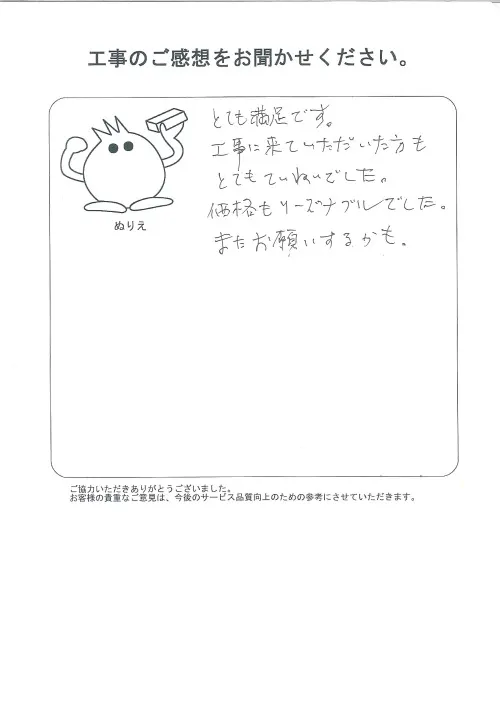 工事のご感想をお聞かせください。
とても満足です。
工事に来ていただいた方も
とてもていねいでした。
価格もリーズナブルでした。
またお願いするかも。
ぬりえ
ご協力いただきありがとうございました。
お客様の貴重なご意見は、今後のサービス品質向上のための参考にさせていただきます。